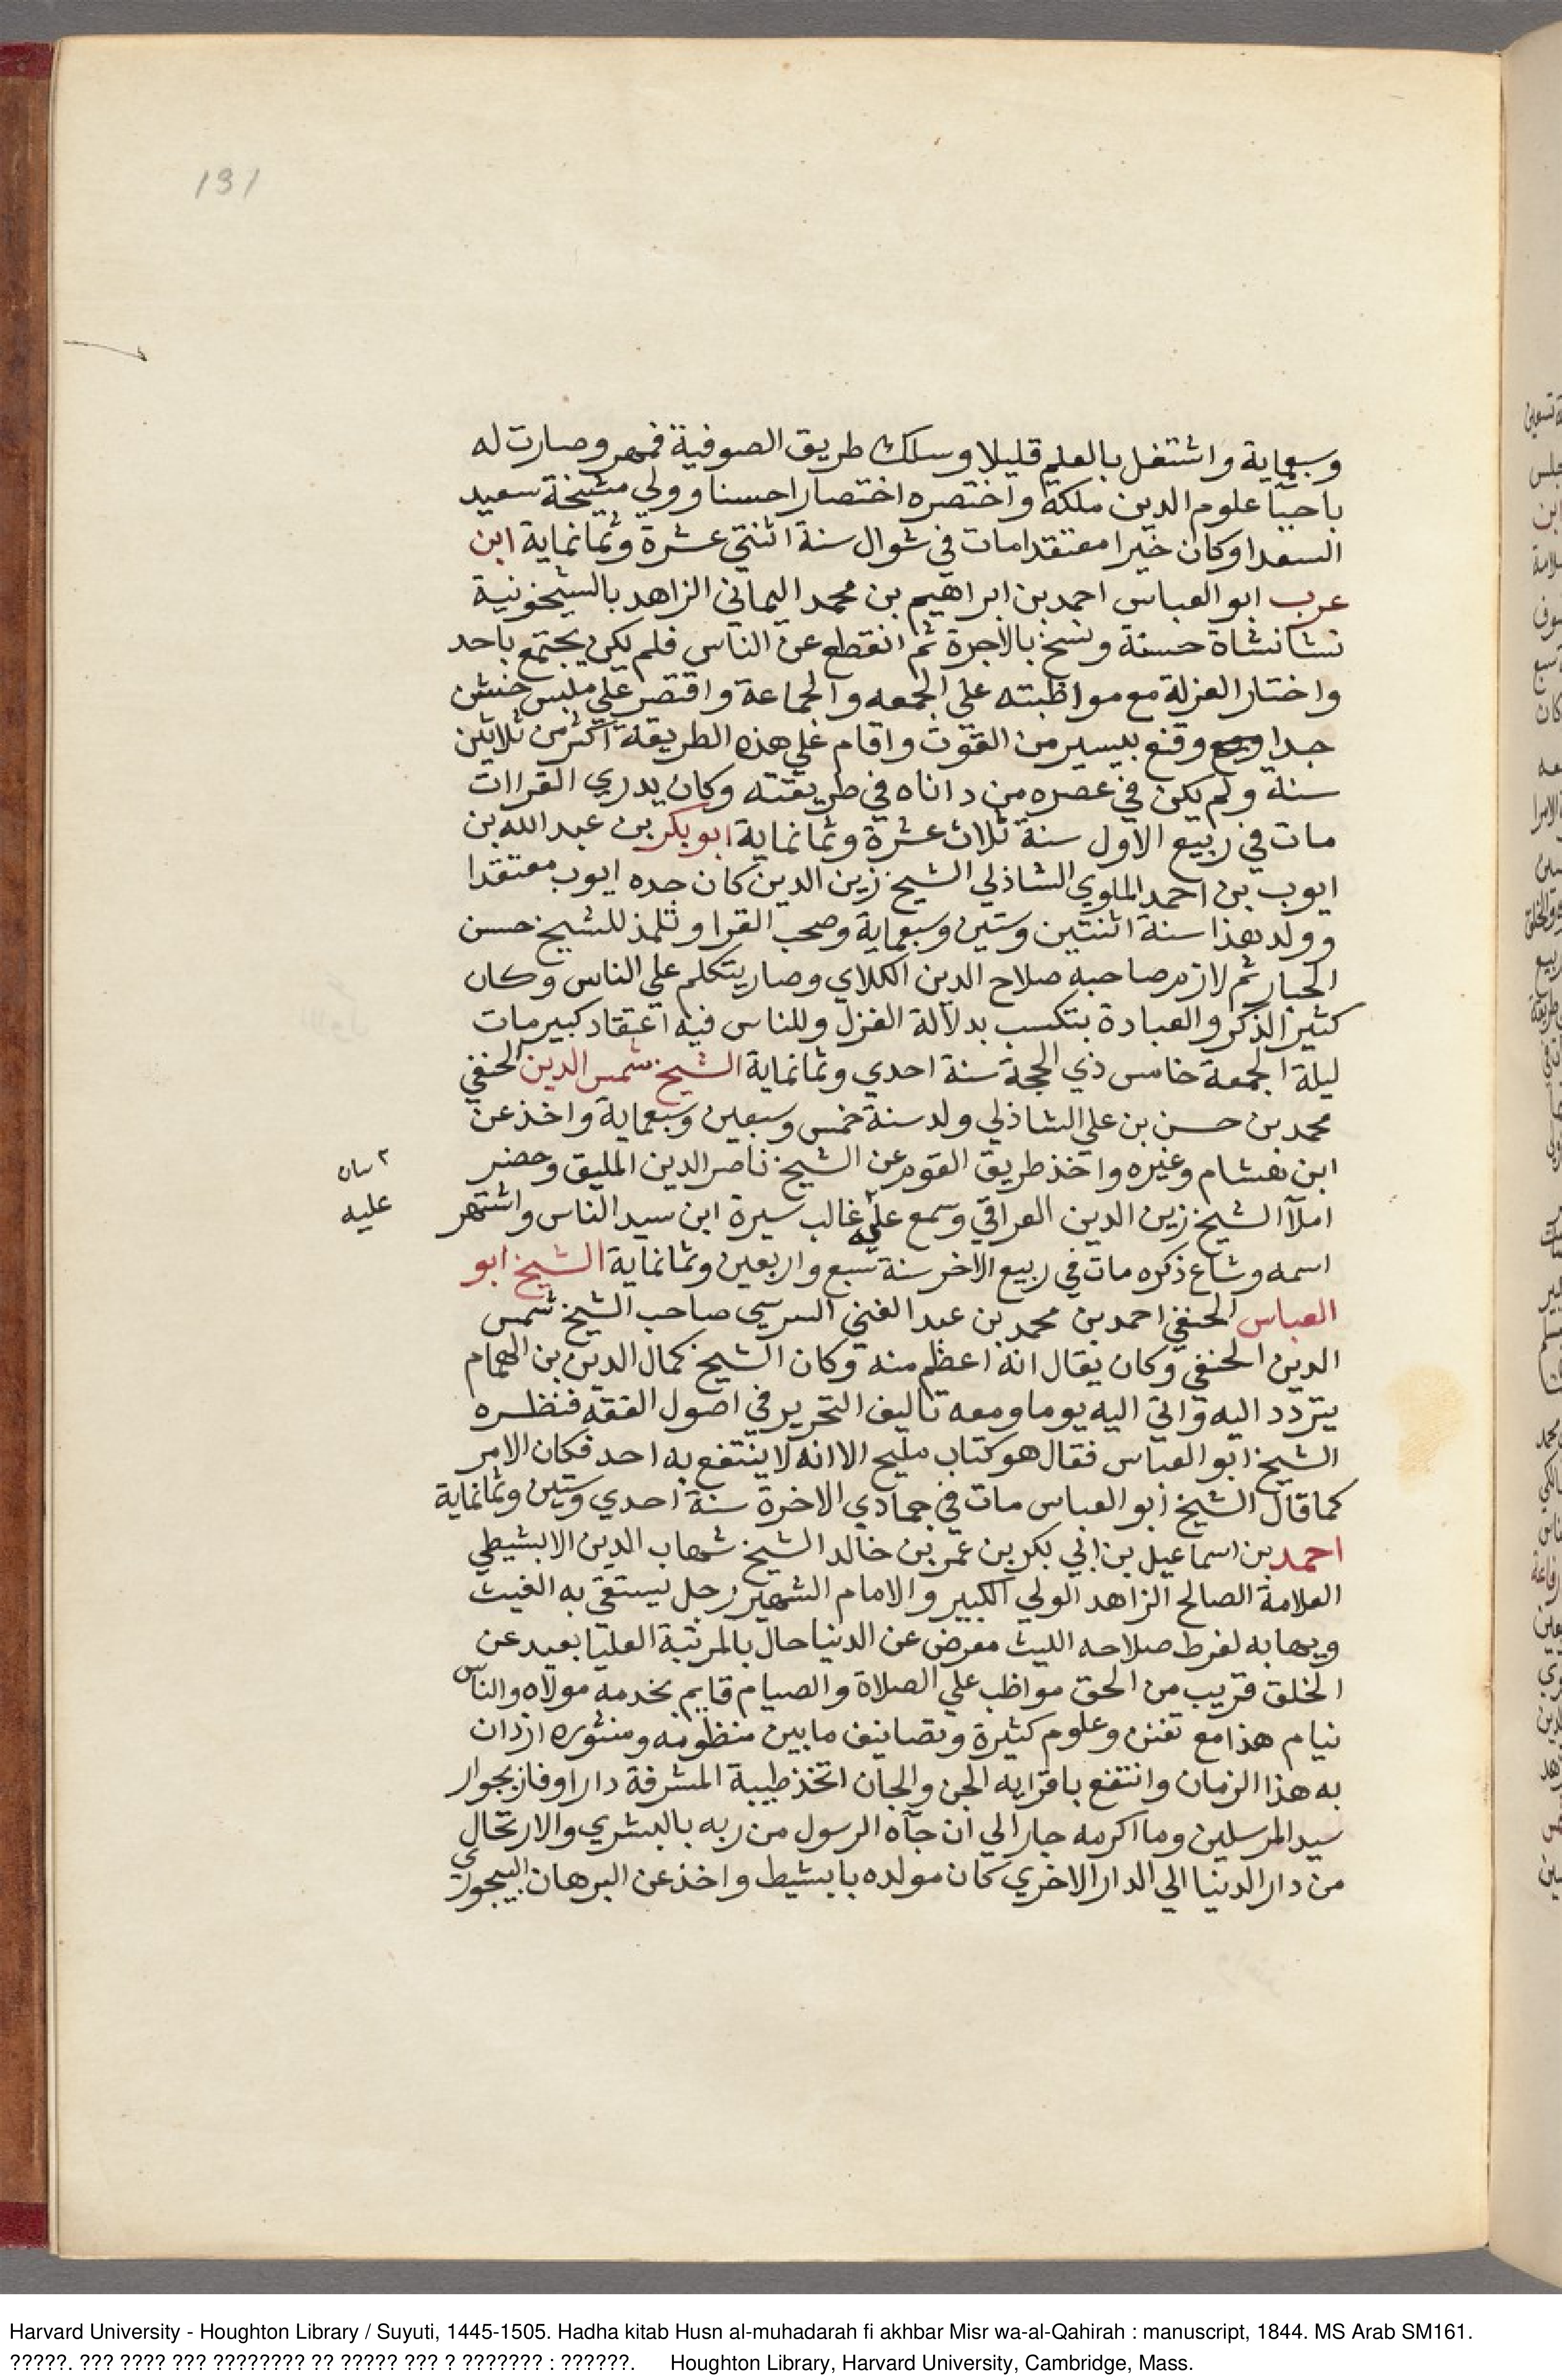 131
وسبعماية واشتغل بالعلم قليلا وسلك طريق الصوفية فمهر وصارت له
باحيآ علوم الدين ملكة واختصره اختصارا حسنا وولي مشيخة سعيد
السعدا وكان خيرا معتقدا مات في شوال سنة اثنتي عشرة وثمانماية ابن
عرب ابو العباس احمد بن ابراهيم بن محمد اليماني الزاهد بالشيخونية
نشا نشاة حسنة ونسخ بالاجرة ثم انقطع عن الناس فلم يكن يجتمع باحد
واختار العزلة مع مواظبته علي الجمعه والجماعة واقتصر علي ملبس خشن
جدا وقنع بيسير من القوت واقام علي هذه الطريقة اكثر من ثلاثين
سنة ولم يكن في عصره من داناه في طريقته وكان يدري القراات
مات في ربيع الاول سنة ثلاث عشرة وثمانماية ابو بكر بن عبد الله بن
ايوب بن احمد الملوي الشاذلي الشيخ زين الدين كان جده ايوب معتقدا
وولد هذا سنة اثنتين وستين وسبعماية وصحب القرا وتلمذ للشيخ حسن
الجبار ثم لازم صاحبه صلاح الدين الكلاي وصار يتكلم علي الناس وكان
كثير الذكر والعبادة يتكسب بدلالة الغزل وللناس فيه اعتقاد كبير مات
ليلة الجمعة خامس ذي الحجة سنة احدي وثمانماية الشيخ شمس الدين الحنفي
محمد بن حسن بن علي الشاذلي ولد سنة خمس وسبعين وسبعماية واخذ عن
ابن هشام وغيره واخذ طريق القوم عن الشيخ ناصر الدين المليق وحضر
املآ الشيخ زين الدين العراقي وسمع عليه غالب سيرة ابن سيد الناس واشتهر
عليه
اسمه وشاع ذكره مات في ربيع الاخر سنة سبع واربعين وثمانماية الشيخ ابو
العباس الحنفي احمد بن محمد بن عبد الغني السرسي صاحب الشيخ شمس
الدين الحنفي وكان يقال انه اعظم منه وكان الشيخ كمال الدين بن الهمام
يتردد اليه واتي اليه يوما ومعه تاليف التحرير في اصول الفقه فنظره
الشيخ ابو العباس فقال هو كتاب مليح الا انه لا ينتفع به احد فكان الامر
كما قال الشيخ ابو العباس مات في جمادي الاخرة سنة احدي وستين وثمانماية
احمد بن اسماعيل بن ابي بكر بن عمر بن خالد الشيخ شهاب الدين الابشيطي
العلامة الصالح الزاهد الولي الكبير والامام الشهير رجل يستقي به الغيث
ويهابه لفرط صلاحه الليث معرض عن الدنيا حال بالمرتبة العليا بعيد عن
الخلق قريب من الحق مواظب علي الصلاة والصيام قايم بخدمه مولاه والناس
نيام هذا مع تفنن وعلوم كثيرة وتصانيف ما بين منظومه ومنثوره ازدان
به هذا الزمان وانتفع باقرايه الجن والجان اتخذ طيبة المشرفة دارا وفاز بجوار
سيد المرسلين وما اكرمه جارا الي ان جآه الرسول من ربه بالبشري والارتحال
من دار الدنيا الي الدار الاخري كان مولده بابشيط واخذ عن البرهان البيجوري
Harvard University - Houghton Library / Suyuti, 1445-1505. Hadha kitab Husn al-muhadarah fi akhbar Misr wa-al-Qahirah : manuscript, 1844. MS Arab SM161.
?????. ??? ???? ??? ???????? ?? ????? ??? ? ??????? : ??????. Houghton Library, Harvard University, Cambridge, Mass.